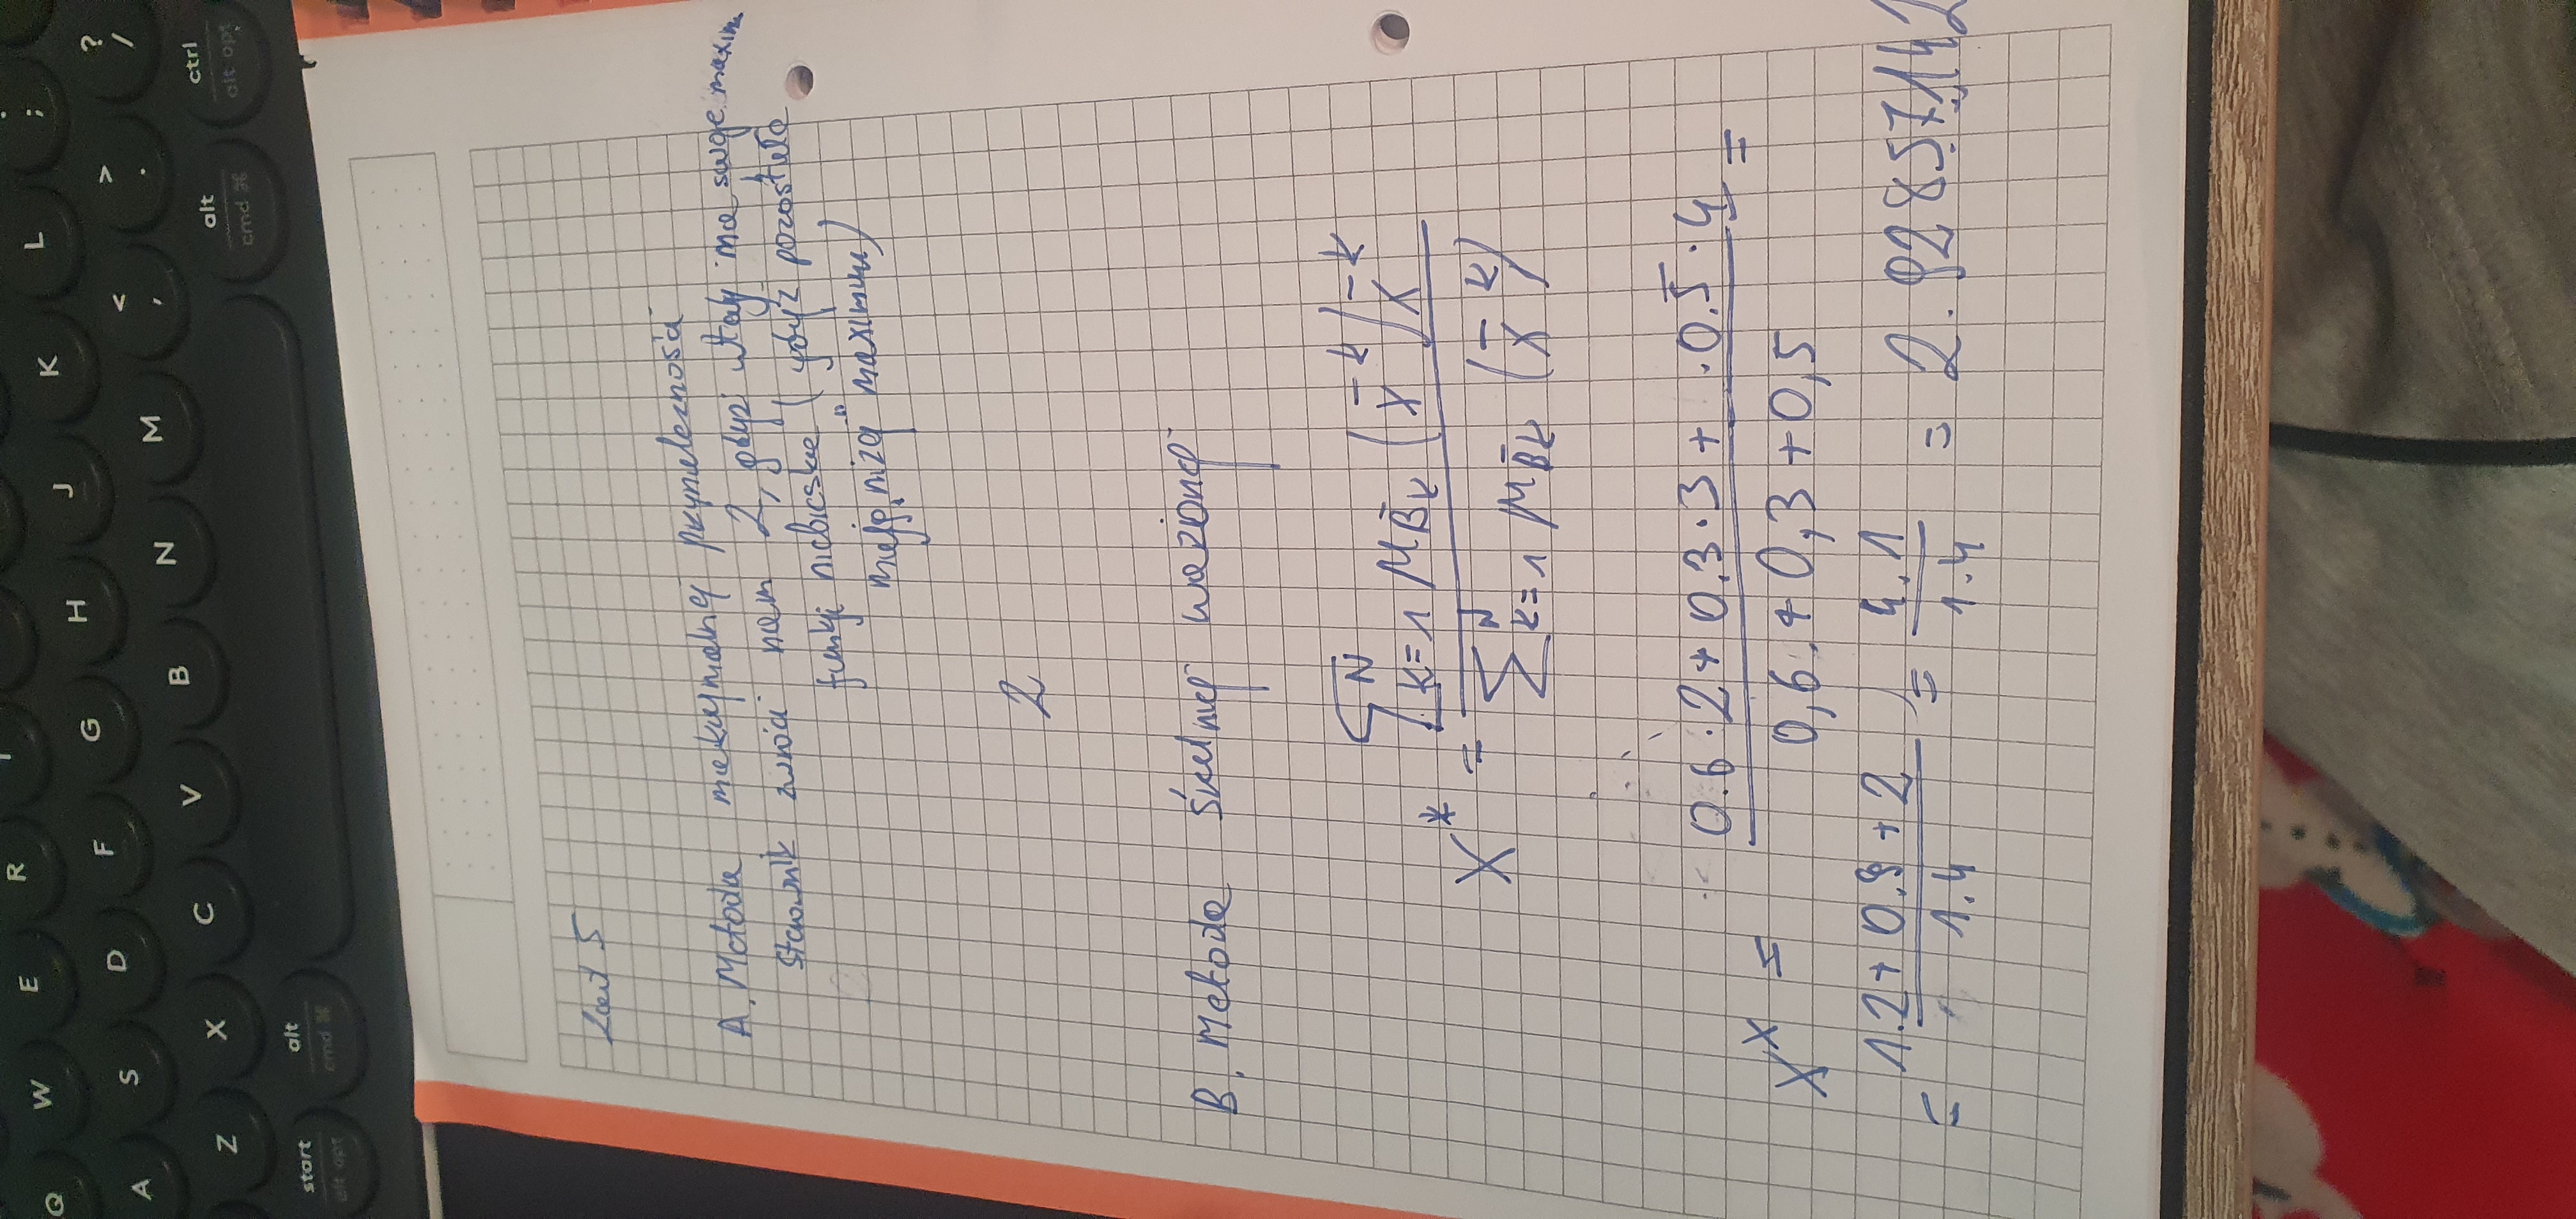 Q W E R
A S D F G H J K L ;
Z X C V B N M < , > . ? /
start alt opt alt cmd ⌘ alt cmd ⌘ ctrl alt opt
Zad 5
A. Metoda maksymalnej przynależności
sterownik zwróci nam 2, gdyż wtedy ma swoje maxim
funkcja niebieska (gdyż pozostałe
mają „niżej" maximum)
2
B. Metoda średniej ważonej
X* = ∑ᴺ k=1 μB̄k (x̄ᵏ) x̄ᵏ / ∑ᴺ k=1 μB̄k (x̄ᵏ)
Xˣ = 0.6 · 2 + 0.3 · 3 + · 0.5 · 4 / 0,6 + 0,3 + 0,5 =
= 1.2 + 0.9 + 2 / 1.4 = 4.1 / 1.4 = 2.92857142